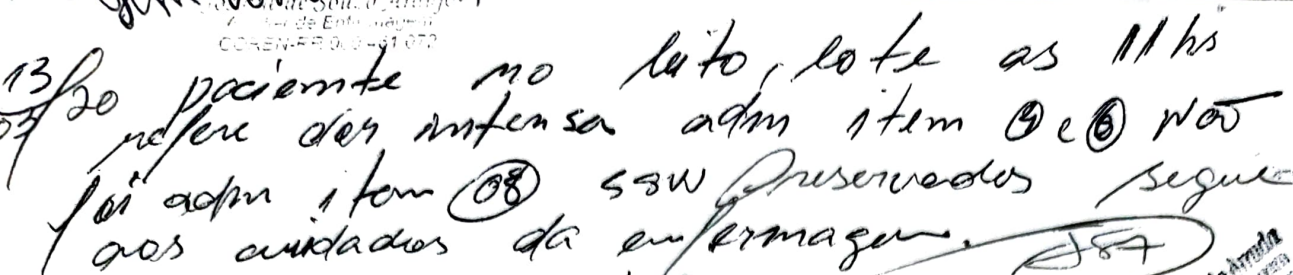 de Souza
COREN-RR
13/07/20 paciente no leito, lote as 11hs
refere dor intensa adm item 4 e 6 não
foi adm item 08 ssvv preservados segue
aos cuidados da enfermagem.